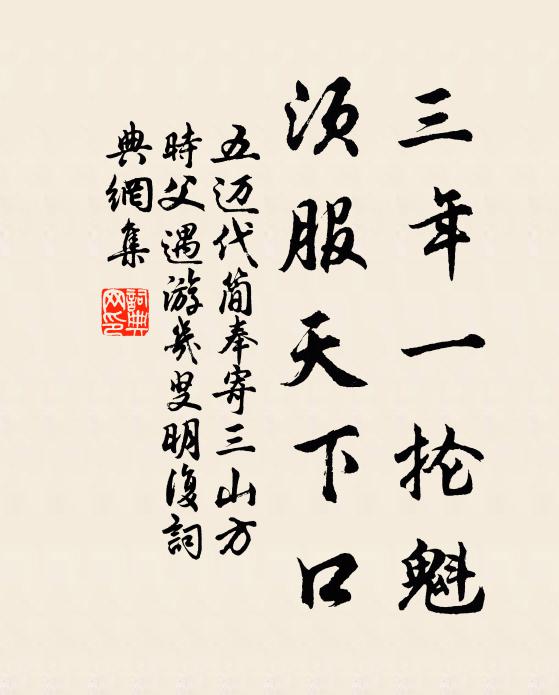 三年一抡魁
须服天下口
五迈代简奉寄三山方
時父遇游㡬叟明復詞
典網集
詞典网印